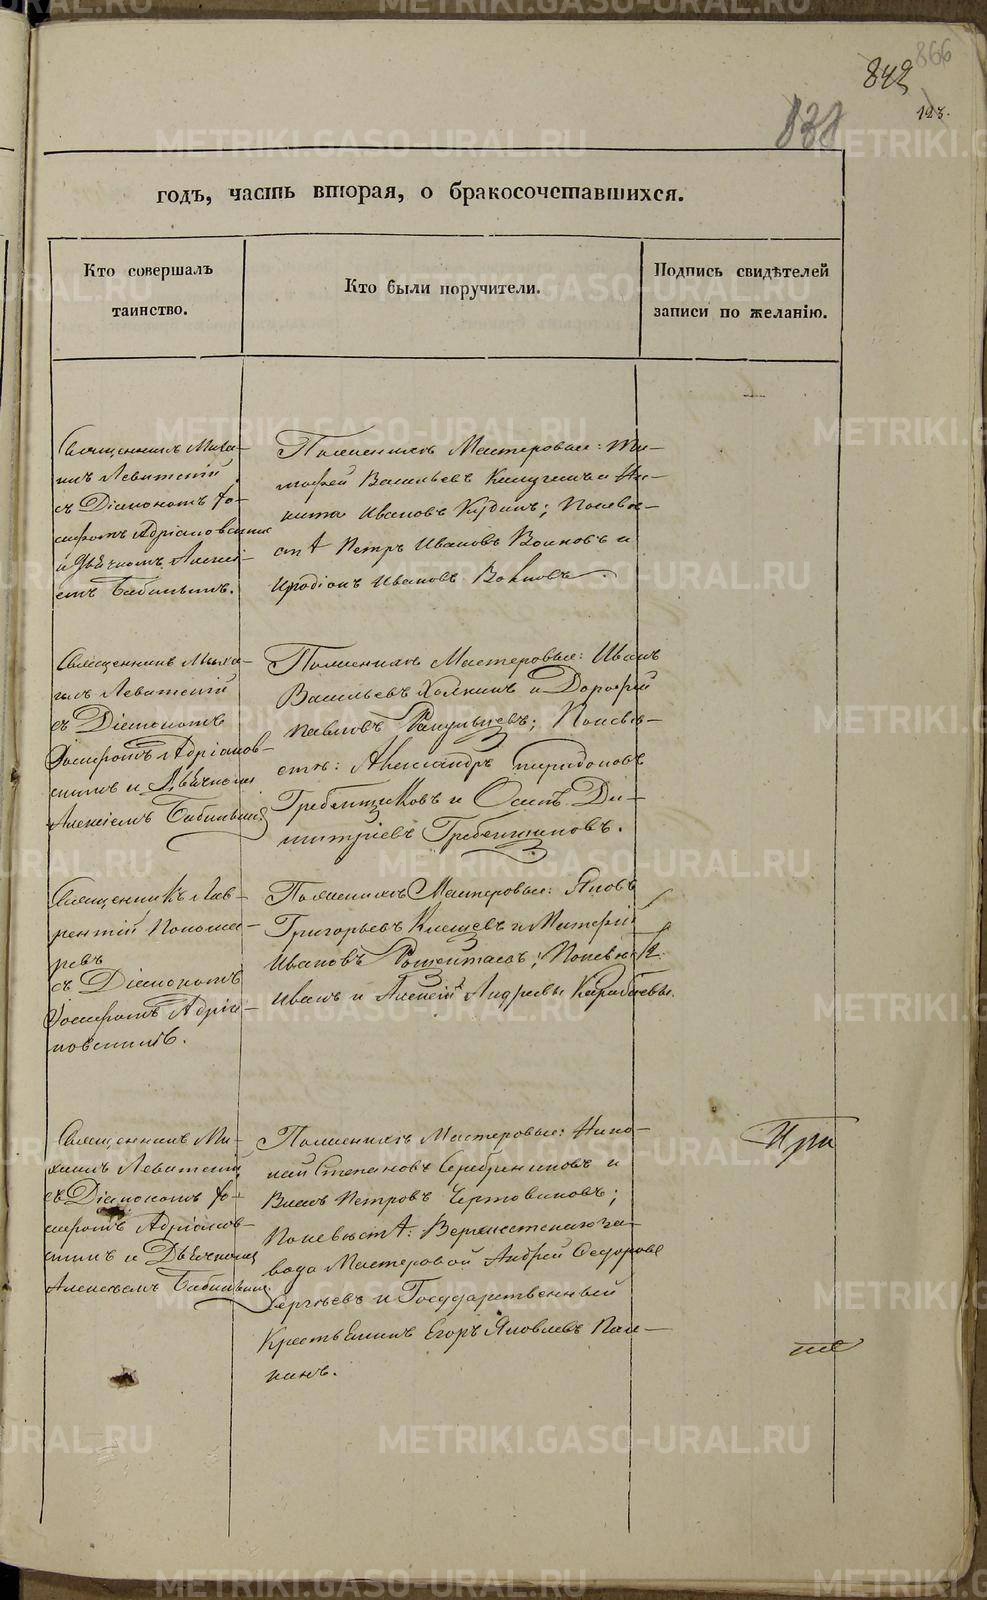 866
842
838
123.
годъ, часть вторая, о бракосочетавшихся.
Кто совершалъ
таинство.
Кто были поручители.
Подпись свидѣтелей
записи по желанію.
Священникъ Миха-
илъ Левитскій
съ Діакономъ Іо-
сифомъ Адріановскимъ
и Дьячкомъ Алексі-
емъ Бабинымъ.
По женихѣ Мастеровые: Ти-
мофей Васильевъ и Ни-
кита Ивановъ; По невѣ-
стѣ Петръ Ивановъ Воиновъ и
Иродіонъ Ивановъ.
Священникъ Миха-
илъ Левитскій
съ Діакономъ
Іосифомъ Адріанов-
скимъ и Дьячкомъ
Алексіемъ
По женихѣ Мастеровые: Иванъ
Васильевъ Холкинъ и Дорофей
Павловъ; По невѣ-
стѣ: Александръ Спиридоновъ
Гребенщиковъ и Осипъ Ди-
митріевъ Гребенщиковъ.
Священникъ Лав-
рентій Пономе-
ревъ
съ Діакономъ
Іосифомъ Адріа-
новскимъ.
По женихѣ Мастеровые: Яковъ
Григорьевъ Клещевъ и
Ивановъ; По невѣстѣ:
Иванъ и Алексій Андреевы
Священникъ Ми-
хаилъ Левитскій
съ Діакономъ Іо-
сифомъ Адріанов-
скимъ и Дьячкомъ
Алексіемъ
По женихѣ Мастеровые: Нико-
лай Степановъ Серебренниковъ и
Петровъ Чертовиковъ;
По невѣстѣ: Верхъисетскаго за-
вода Мастеровой Андрей Ѳедоровъ
Сергѣевъ и Государственный
Крестьянинъ Егоръ Яковлевъ Пал-
кинъ.
При
METRIKI.GASO-URAL.RU